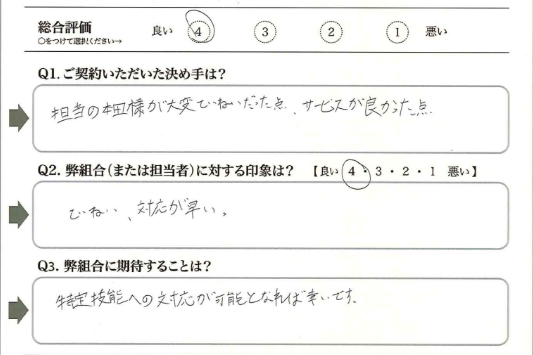 総合評価 良い 4 3 2 1 悪い
○をつけて選択ください→
Q1.ご契約いただいた決め手は?
担当の本田様が大変ていねいだった点、サービスが良かった点
Q2. 弊組合(または担当者)に対する印象は? 【良い 4・3・2・1 悪い】
ていねい、対応が早い。
Q3. 弊組合に期待することは?
特定技能への対応が可能となれば幸いです。